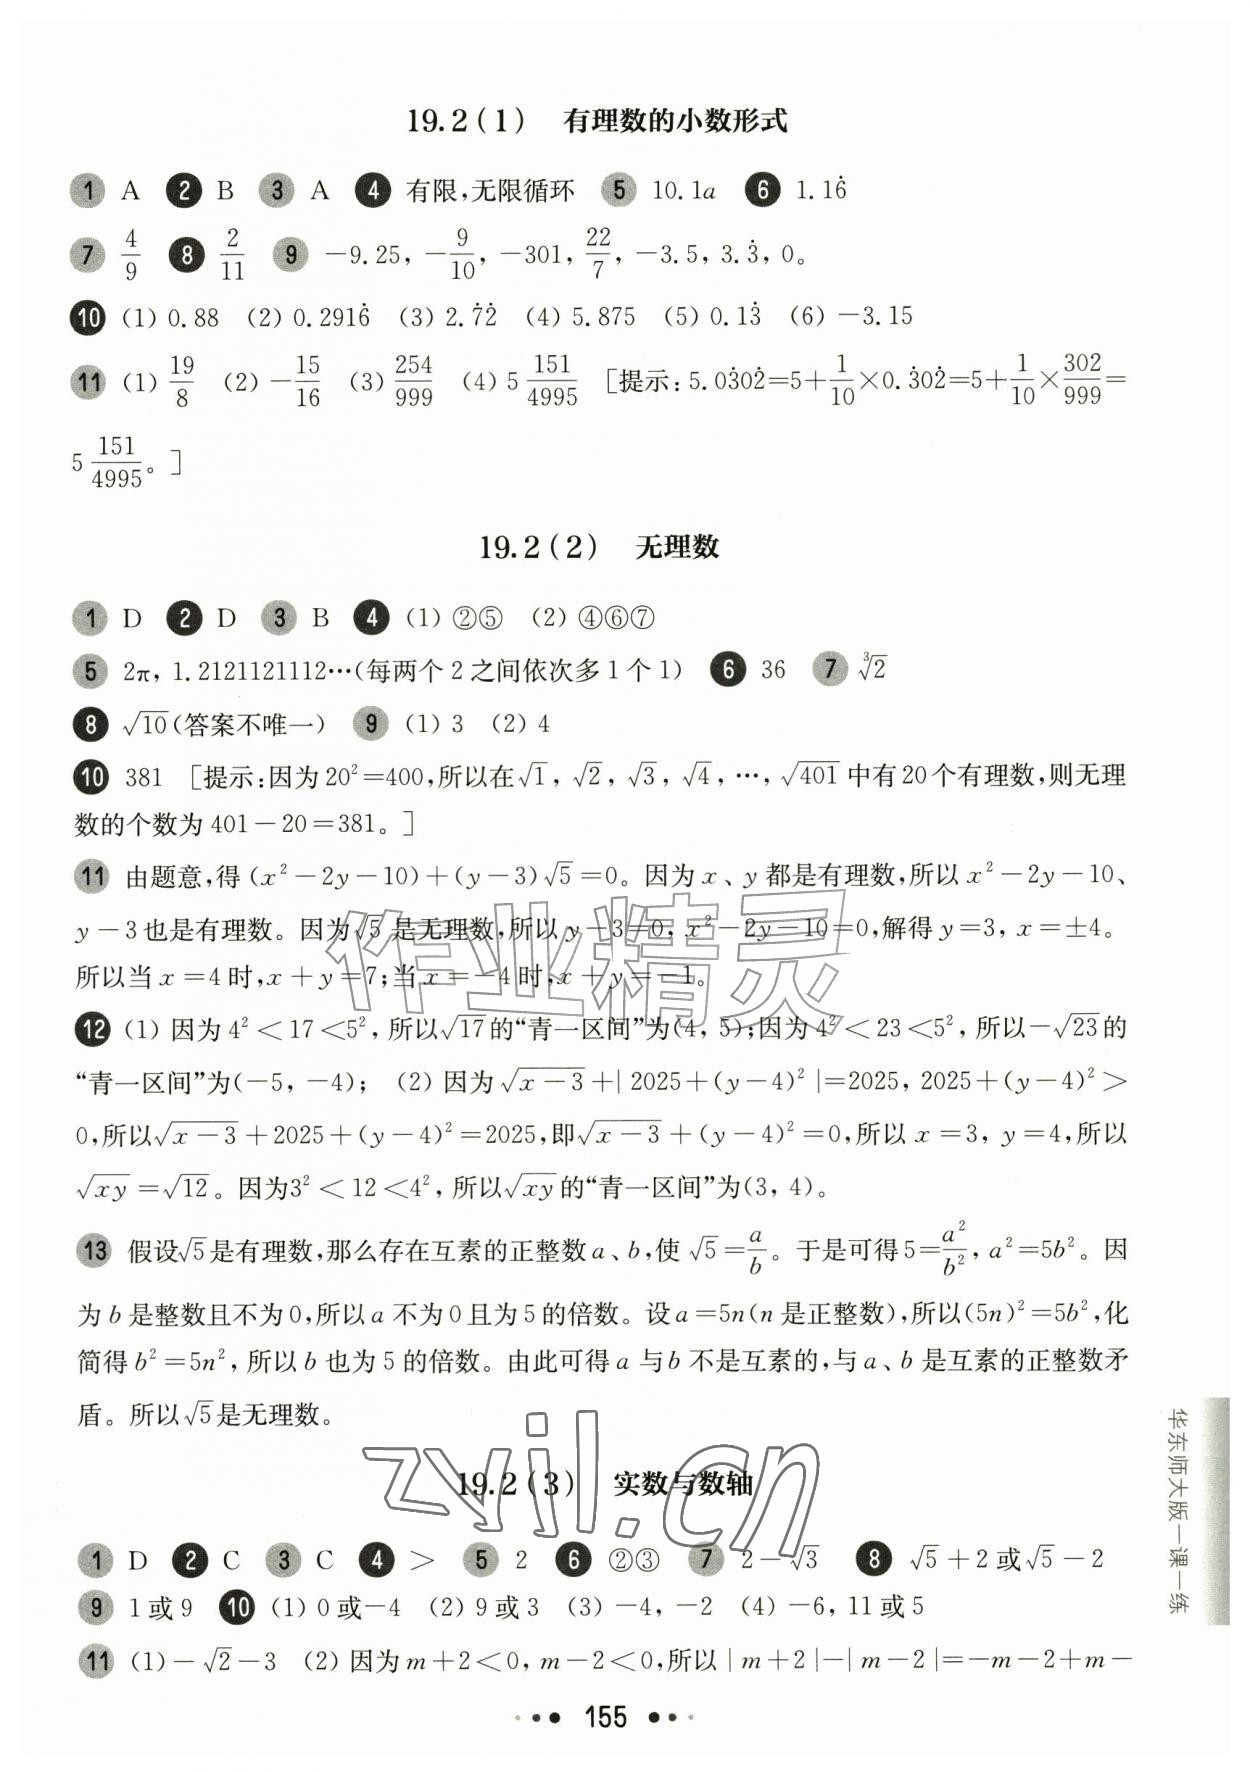 19.2(1) 有理数的小数形式
1 A 2 B 3 A 4 有限,无限循环 5 10.1a 6 1.16̇
7 4/9 8 2/11 9 −9.25, −9/10, −301, 22/7, −3.5, 3.3̇, 0。
10 (1) 0.88 (2) 0.2916̇ (3) 2.7̇2̇ (4) 5.875 (5) 0.13̇ (6) −3.15
11 (1) 19/8 (2) −15/16 (3) 254/999 (4) 5 151/4995 [提示:5.03̇02̇=5+1/10×0.3̇02̇=5+1/10×302/999=
5 151/4995。]
19.2(2) 无理数
1 D 2 D 3 B 4 (1) ②⑤ (2) ④⑥⑦
5 2π, 1.2121121112…(每两个2之间依次多1个1) 6 36 7 ∛2
8 √10(答案不唯一) 9 (1) 3 (2) 4
10 381 [提示:因为20²=400,所以在√1, √2, √3, √4, …, √401中有20个有理数,则无理
数的个数为401−20=381。]
11 由题意,得(x²−2y−10)+(y−3)√5=0。因为x、y都是有理数,所以x²−2y−10、
y−3也是有理数。因为√5是无理数,所以y−3=0, x²−2y−10=0,解得y=3, x=±4。
所以当x=4时,x+y=7;当x=−4时,x+y=−1。
12 (1) 因为4²<17<5²,所以√17的“青一区间”为(4, 5);因为4²<23<5²,所以−√23的
“青一区间”为(−5, −4); (2) 因为√(x−3)+|2025+(y−4)²|=2025, 2025+(y−4)²>
0,所以√(x−3)+2025+(y−4)²=2025,即√(x−3)+(y−4)²=0,所以x=3, y=4,所以
√(xy)=√12。因为3²<12<4²,所以√(xy)的“青一区间”为(3, 4)。
13 假设√5是有理数,那么存在互素的正整数a、b,使√5=a/b。于是可得5=a²/b², a²=5b²。因
为b是整数且不为0,所以a不为0且为5的倍数。设a=5n(n是正整数),所以(5n)²=5b²,化
简得b²=5n²,所以b也为5的倍数。由此可得a与b不是互素的,与a、b是互素的正整数矛
盾。所以√5是无理数。
19.2(3) 实数与数轴
1 D 2 C 3 C 4 > 5 2 6 ②③ 7 2−√3 8 √5+2或√5−2
9 1或9 10 (1) 0或−4 (2) 9或3 (3) −4, −2 (4) −6, 11或5
11 (1) −√2−3 (2) 因为m+2<0, m−2<0,所以|m+2|−|m−2|=−m−2+m−
155
华东师大版一课一练
作业精灵
zyil.cn